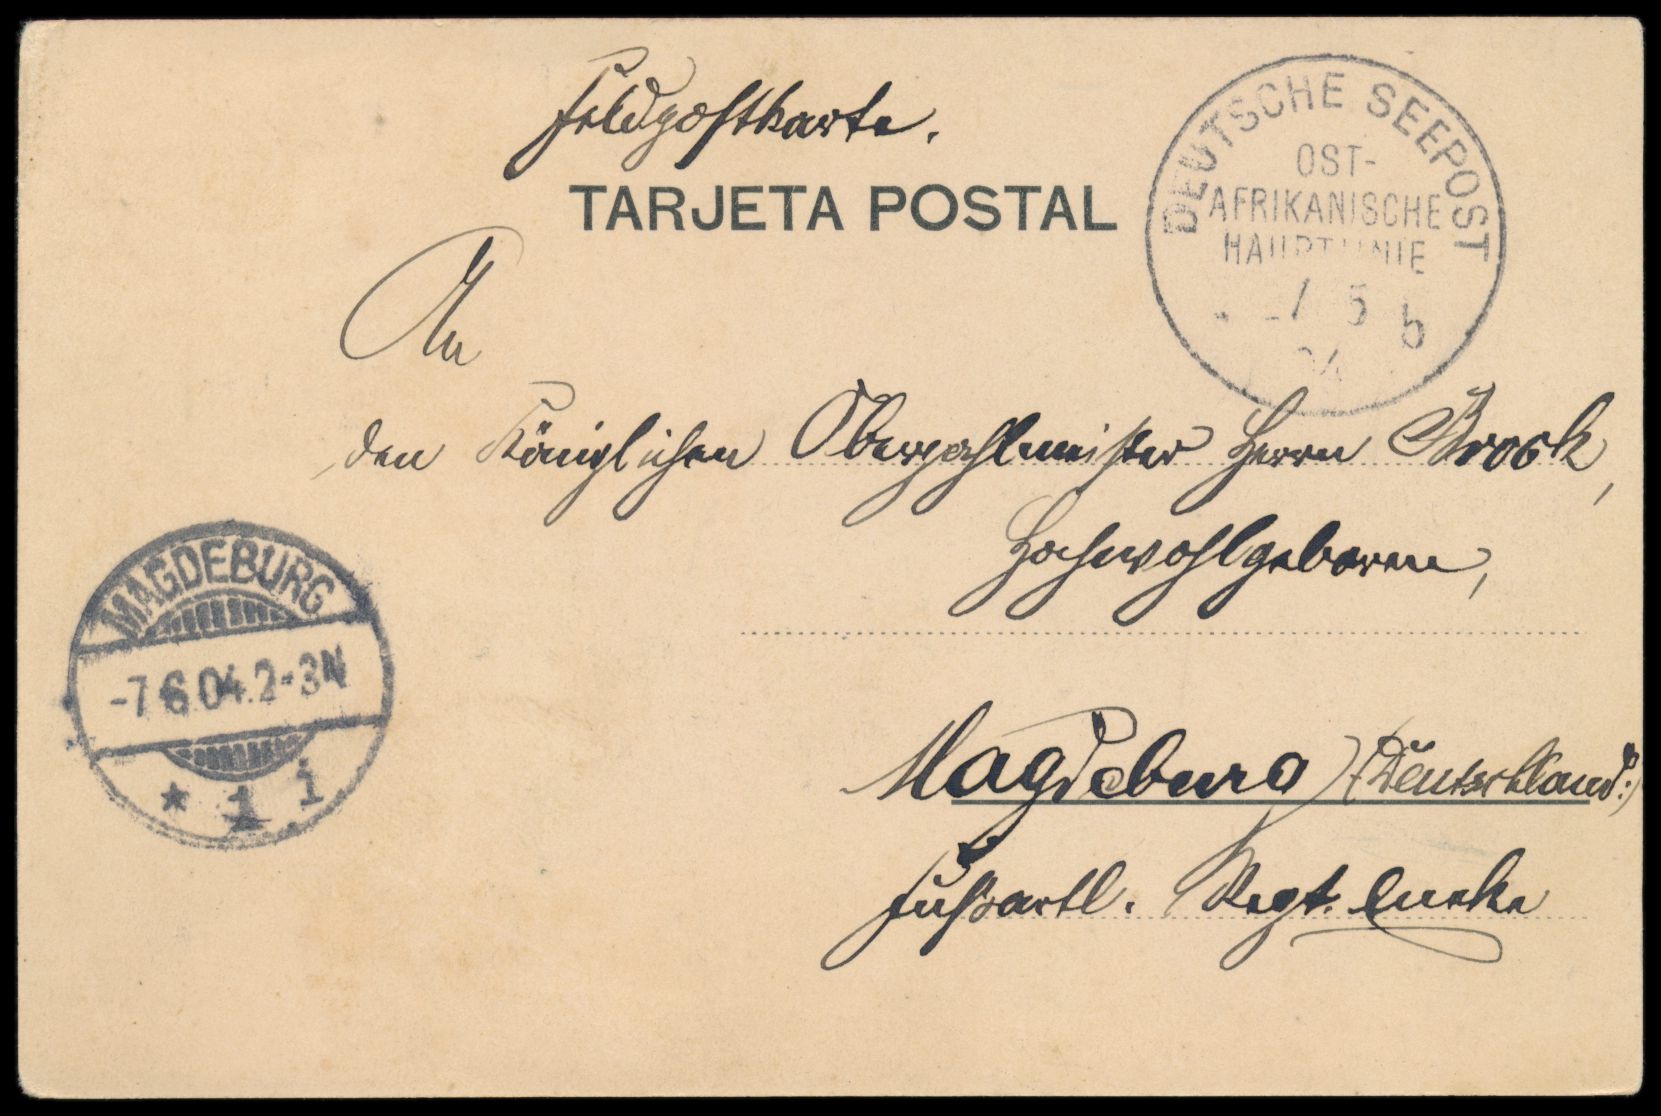 Feldpostkarte.
TARJETA POSTAL
DEUTSCHE SEEPOST
OST-
AFRIKANISCHE
HAUPTLINIE
5 b
04
An
den Königlichen Oberzahlmeister Herrn Brock,
Hochwohlgeboren,
MAGDEBURG
-7.6.04.2-3N
* 1 i
Magdeburg (:Deutschland:)
Fußartl. Regt. Encke